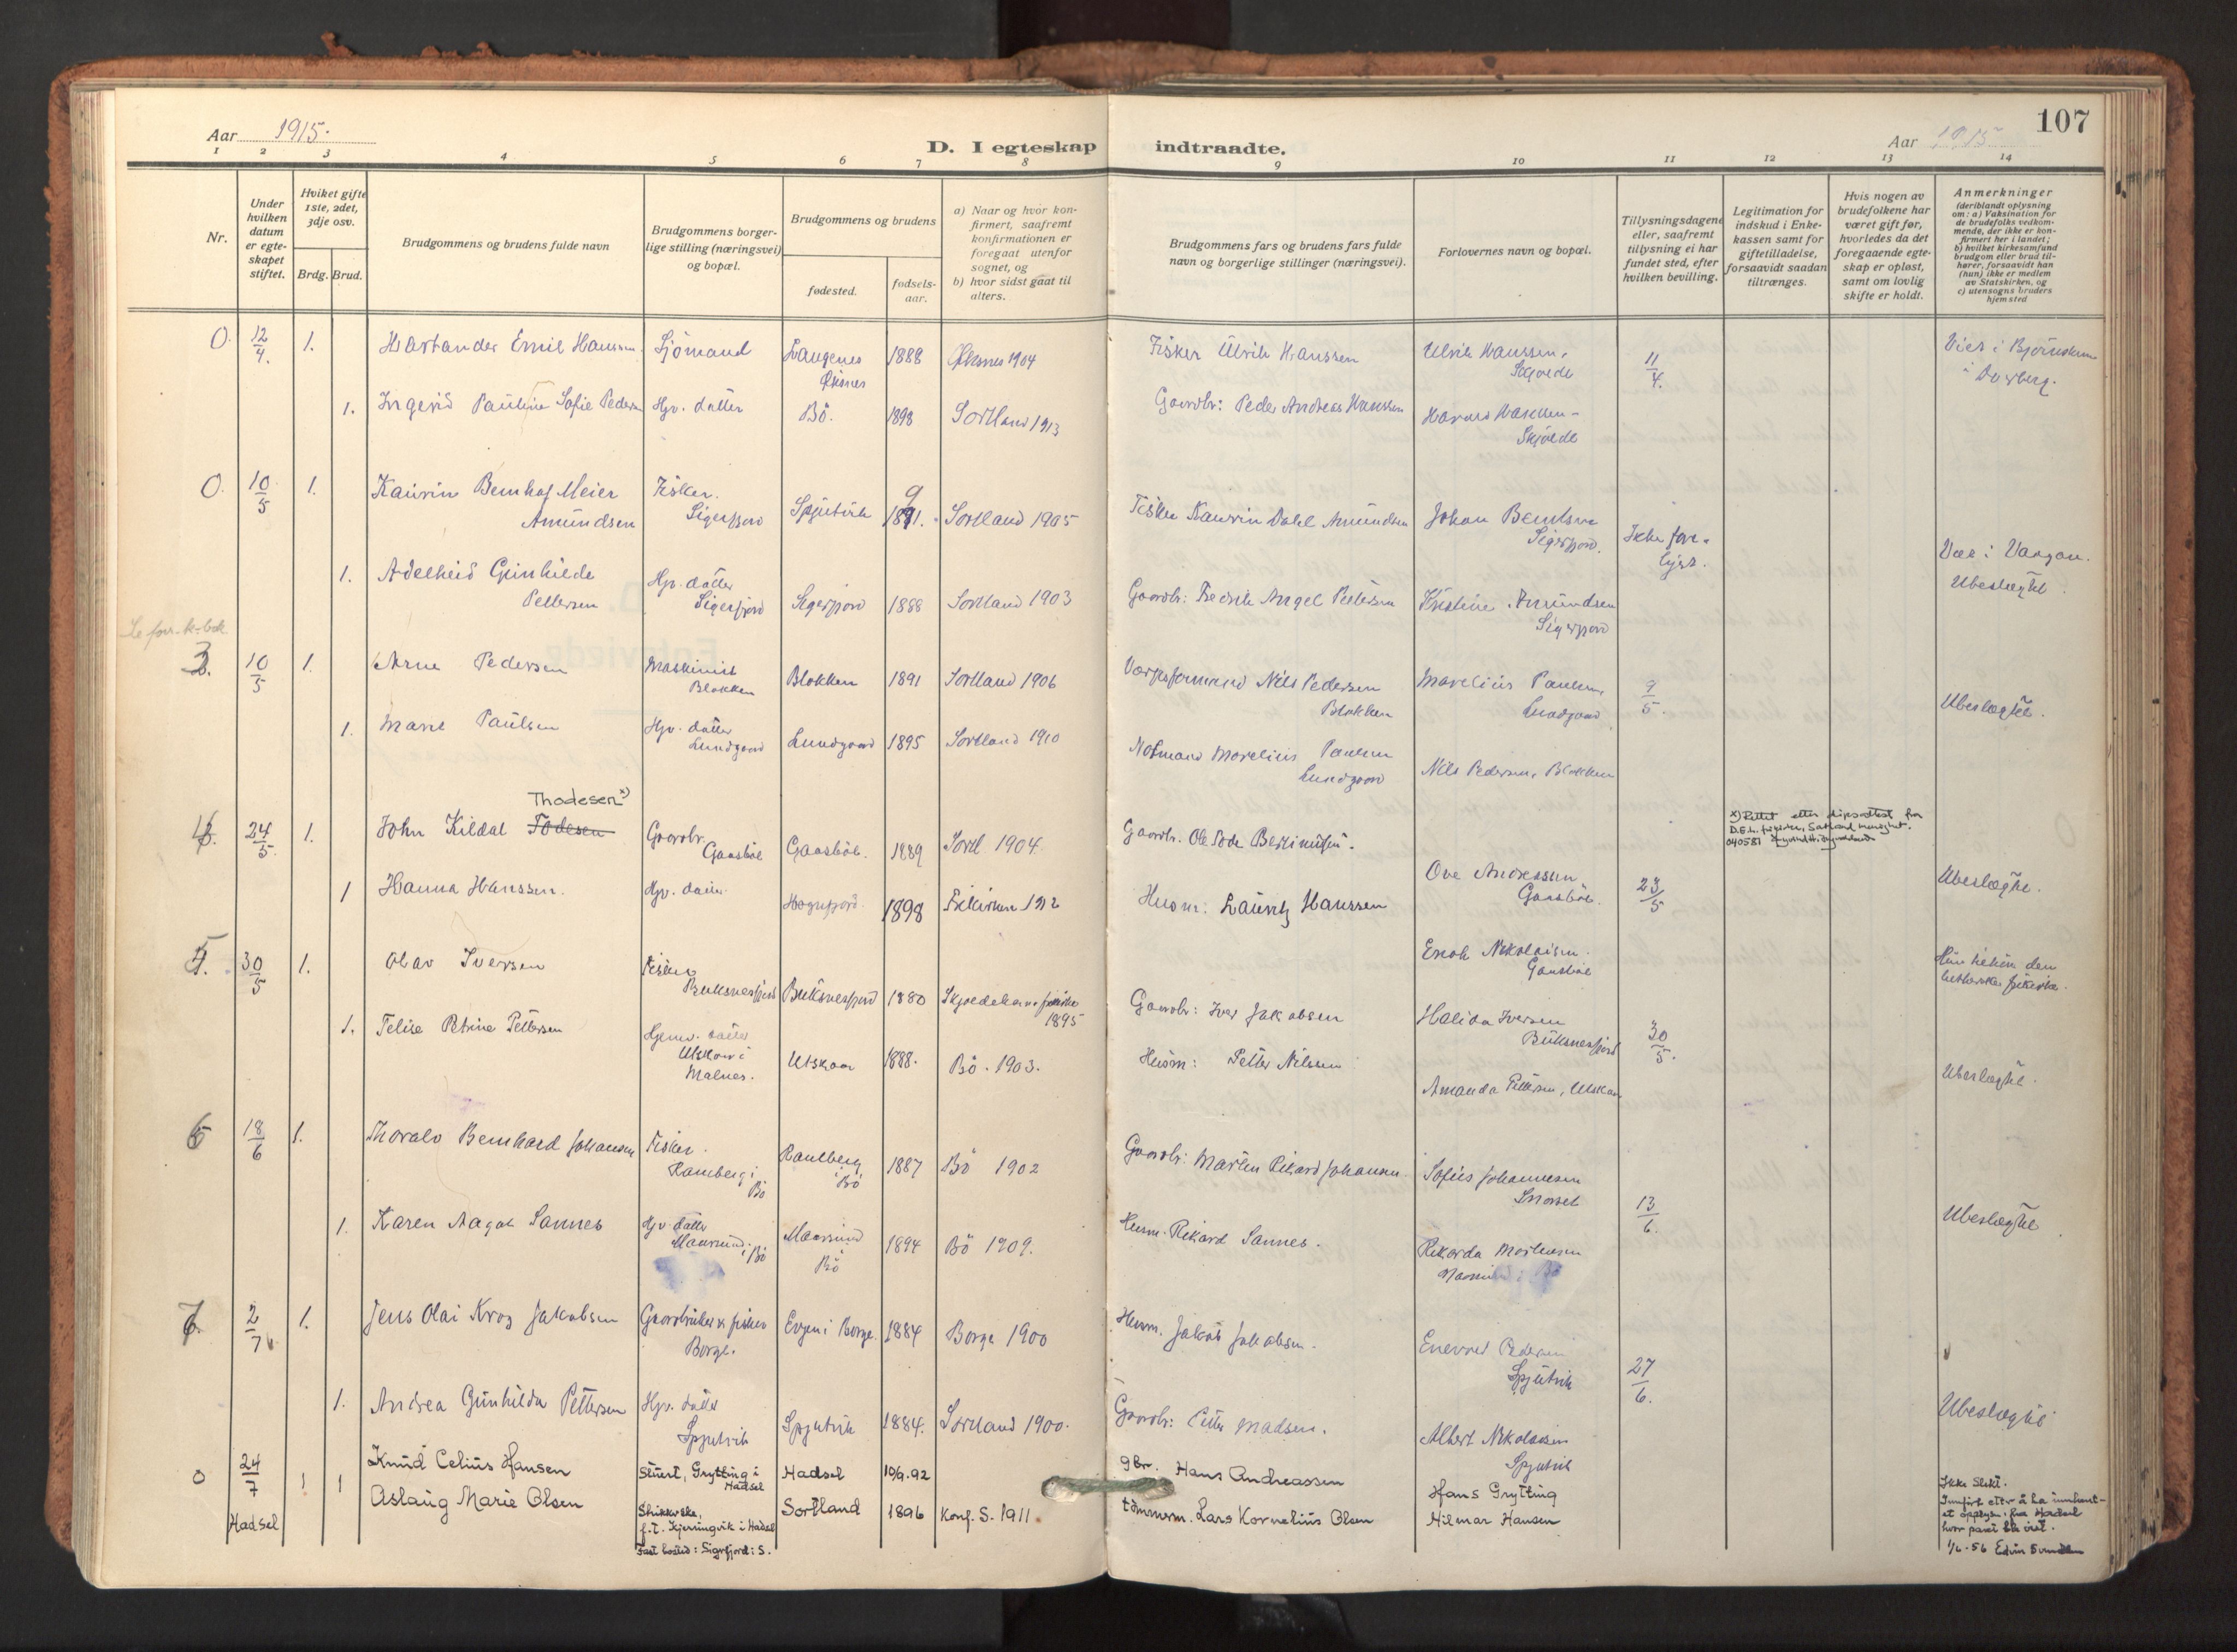 107
Aar 1915.
D. I egteskap indtraadte.
Aar 1915
1 2 3 4 5 6 7 8 9 10 11 12 13 14
Nr.
Under hvilken datum er egteskapet stiftet.
Hviket gifte 1ste, 2det, 3dje osv.
Brdg. Brud.
Brudgommens og brudens fulde navn
Brudgommens borgerlige stilling (næringsvei) og bopæl.
Brudgommens og brudens
fødested.
fødselsaar.
a) Naar og hvor konfirmert, saafremt konfirmationen er foregaat utenfor sognet, og
b) hvor sidst gaat til alters.
Brudgommens fars og brudens fars fulde navn og borgerlige stillinger (næringsvei).
Forlovernes navn og bopæl.
Tillysningsdagene eller, saafremt tillysning ei har fundet sted, efter hvilken bevilling.
Legitimation for indskud i Enkekassen samt for giftetilladelse, forsaavidt saadan tiltrænges.
Hvis nogen av brudefolkene har været gift før, hvorledes da det foregaaende egteskap er opløst, samt om lovlig skifte er holdt.
Anmerkninger (deriblandt oplysning om: a) Vaksination for de brudefolks vedkommende, der ikke er konfirmert her i landet; b) hvilket kirkesamfund brudgom eller brud tilhører, forsaavidt han (hun) ikke er medlem av Statskirken, og c) utensogns bruders hjemsted
0. 12/4. 1. Emil Hanssen Sjömand Langenes Öksnes 1888 Öksnes 1904 Fisker Ulrik Hanssen Ulrik Hanssen, 11/4.
1. Ingerid Pauline Sofie Peders Hjv. datter Bö. 1898 Sortland 1913 Gaardbr: Peder Andreas Hanssen
0. 10/5 1. Kaurin Bernhof Meier Amundsen Fisker. Sigerfjord Spjutvik 1891. Sortland 1905 Fisker Kaurin Dahl Amundsen Johan Bendtsen Sigerfjord. Ikke forelyst.
1. Adelheid Gunhilde Pettersen Hjv. datter Sigerfjord Sigerfjord 1888 Sortland 1903 Gaardbr: Fredrik Angel Pettersen Kristine Amundsen Sigerfjord Ubeslægtet.
Se forr. k.bok
3. 10/5 1. Arne Pedersen Maskinist Blokken Blokken 1891 Sortland 1906 Nils Pedersen Blokken Marelius Paulsen, Lundgaard 9/5. Ubeslægtet.
1. Marie Paulsen Hjv. datter Lundgaard Lundgaard 1895 Sortland 1910 Notmand Marelius Paulsen Lundgaard Nils Pedersen, Blokken
Thodesen x)
4. 24/5. 1. John Kildal Todesen Gaardbr. Gaasböl Gaasböl. 1889 Sortl 1904. Gaardbr. Ole Tode Ove Andreassen Gaasböl. 23/5 Ubeslægtet.
x) Rettet etter dåpsattest fra
D.E.L. frikirken, Sortland menighet.
040581
1 Hanna Hanssen. Hjv. datter 1898 Frikirken 1912 Husm: Lauritz Hanssen Enok Nikolaisen. Gaasböl
5. 30/5 1. Olav Iversen Fisker Buksnesfjord Buksnesfjord 1880 1895 Gaardbr: Iver Jakobsen Halida Iversen Buksnesfjord 30/5. Ubeslægtet.
1. Felise Petrine Pettersen Hjemv. datter Utskor i Malnes. Utskaar 1888. Bö. 1903. Husm: Petter Nilssen Amanda Pettersen, Utskaar
6 18/6 1. Thoralv Bernhard Johansen Fisker. Ramberg i Bö 1887 Bö 1902 Gaardbr: Martin Rikard Johansen. Sofus Johannesen 13/6. Ubeslægtet
1. Karen Aagot Sannes Hjv. datter Maarsund i Bö Maarsund Bö 1894 Bö 1909. Husm. Rikard Sannes. Rikarda Mortensen
7. 2/7 1. Jens Olai Krog Jakobsen Gaardbruker & fisker Borge. i Borge. 1884 Borge 1900 Husm. Jakob Jakobsen. Enevold Pedersen Spjutvik 27/6. Ubeslægtet
1. Andrea Gunhilda Pettersen Hjv. datter Spjutvik Spjutvik 1884. Sortland 1900. Gaardbr: Petter Madsen. Albert Nikolaisen Spjutvik
0 24/7 Hadsel 1 1 Knud Celius Hansen Stuert, Grytting i Hadsel Hadsel 10/9.92 gbr. Hans Andreassen Hans Grytting
Aslaug Marie Olsen Strikkerske, f.t. Kjerringvik i Hadsel Fast bosted: Sigerfjord i S. Sortland 1896 Konf. S. 1911 tömmerm. Lars Kornelius Olsen Hilmar Hansen
Ikke slekt.
Innfört etter å ha innhentet opplysn. fra Hadsel hvor paret ble viet.
1/6-56